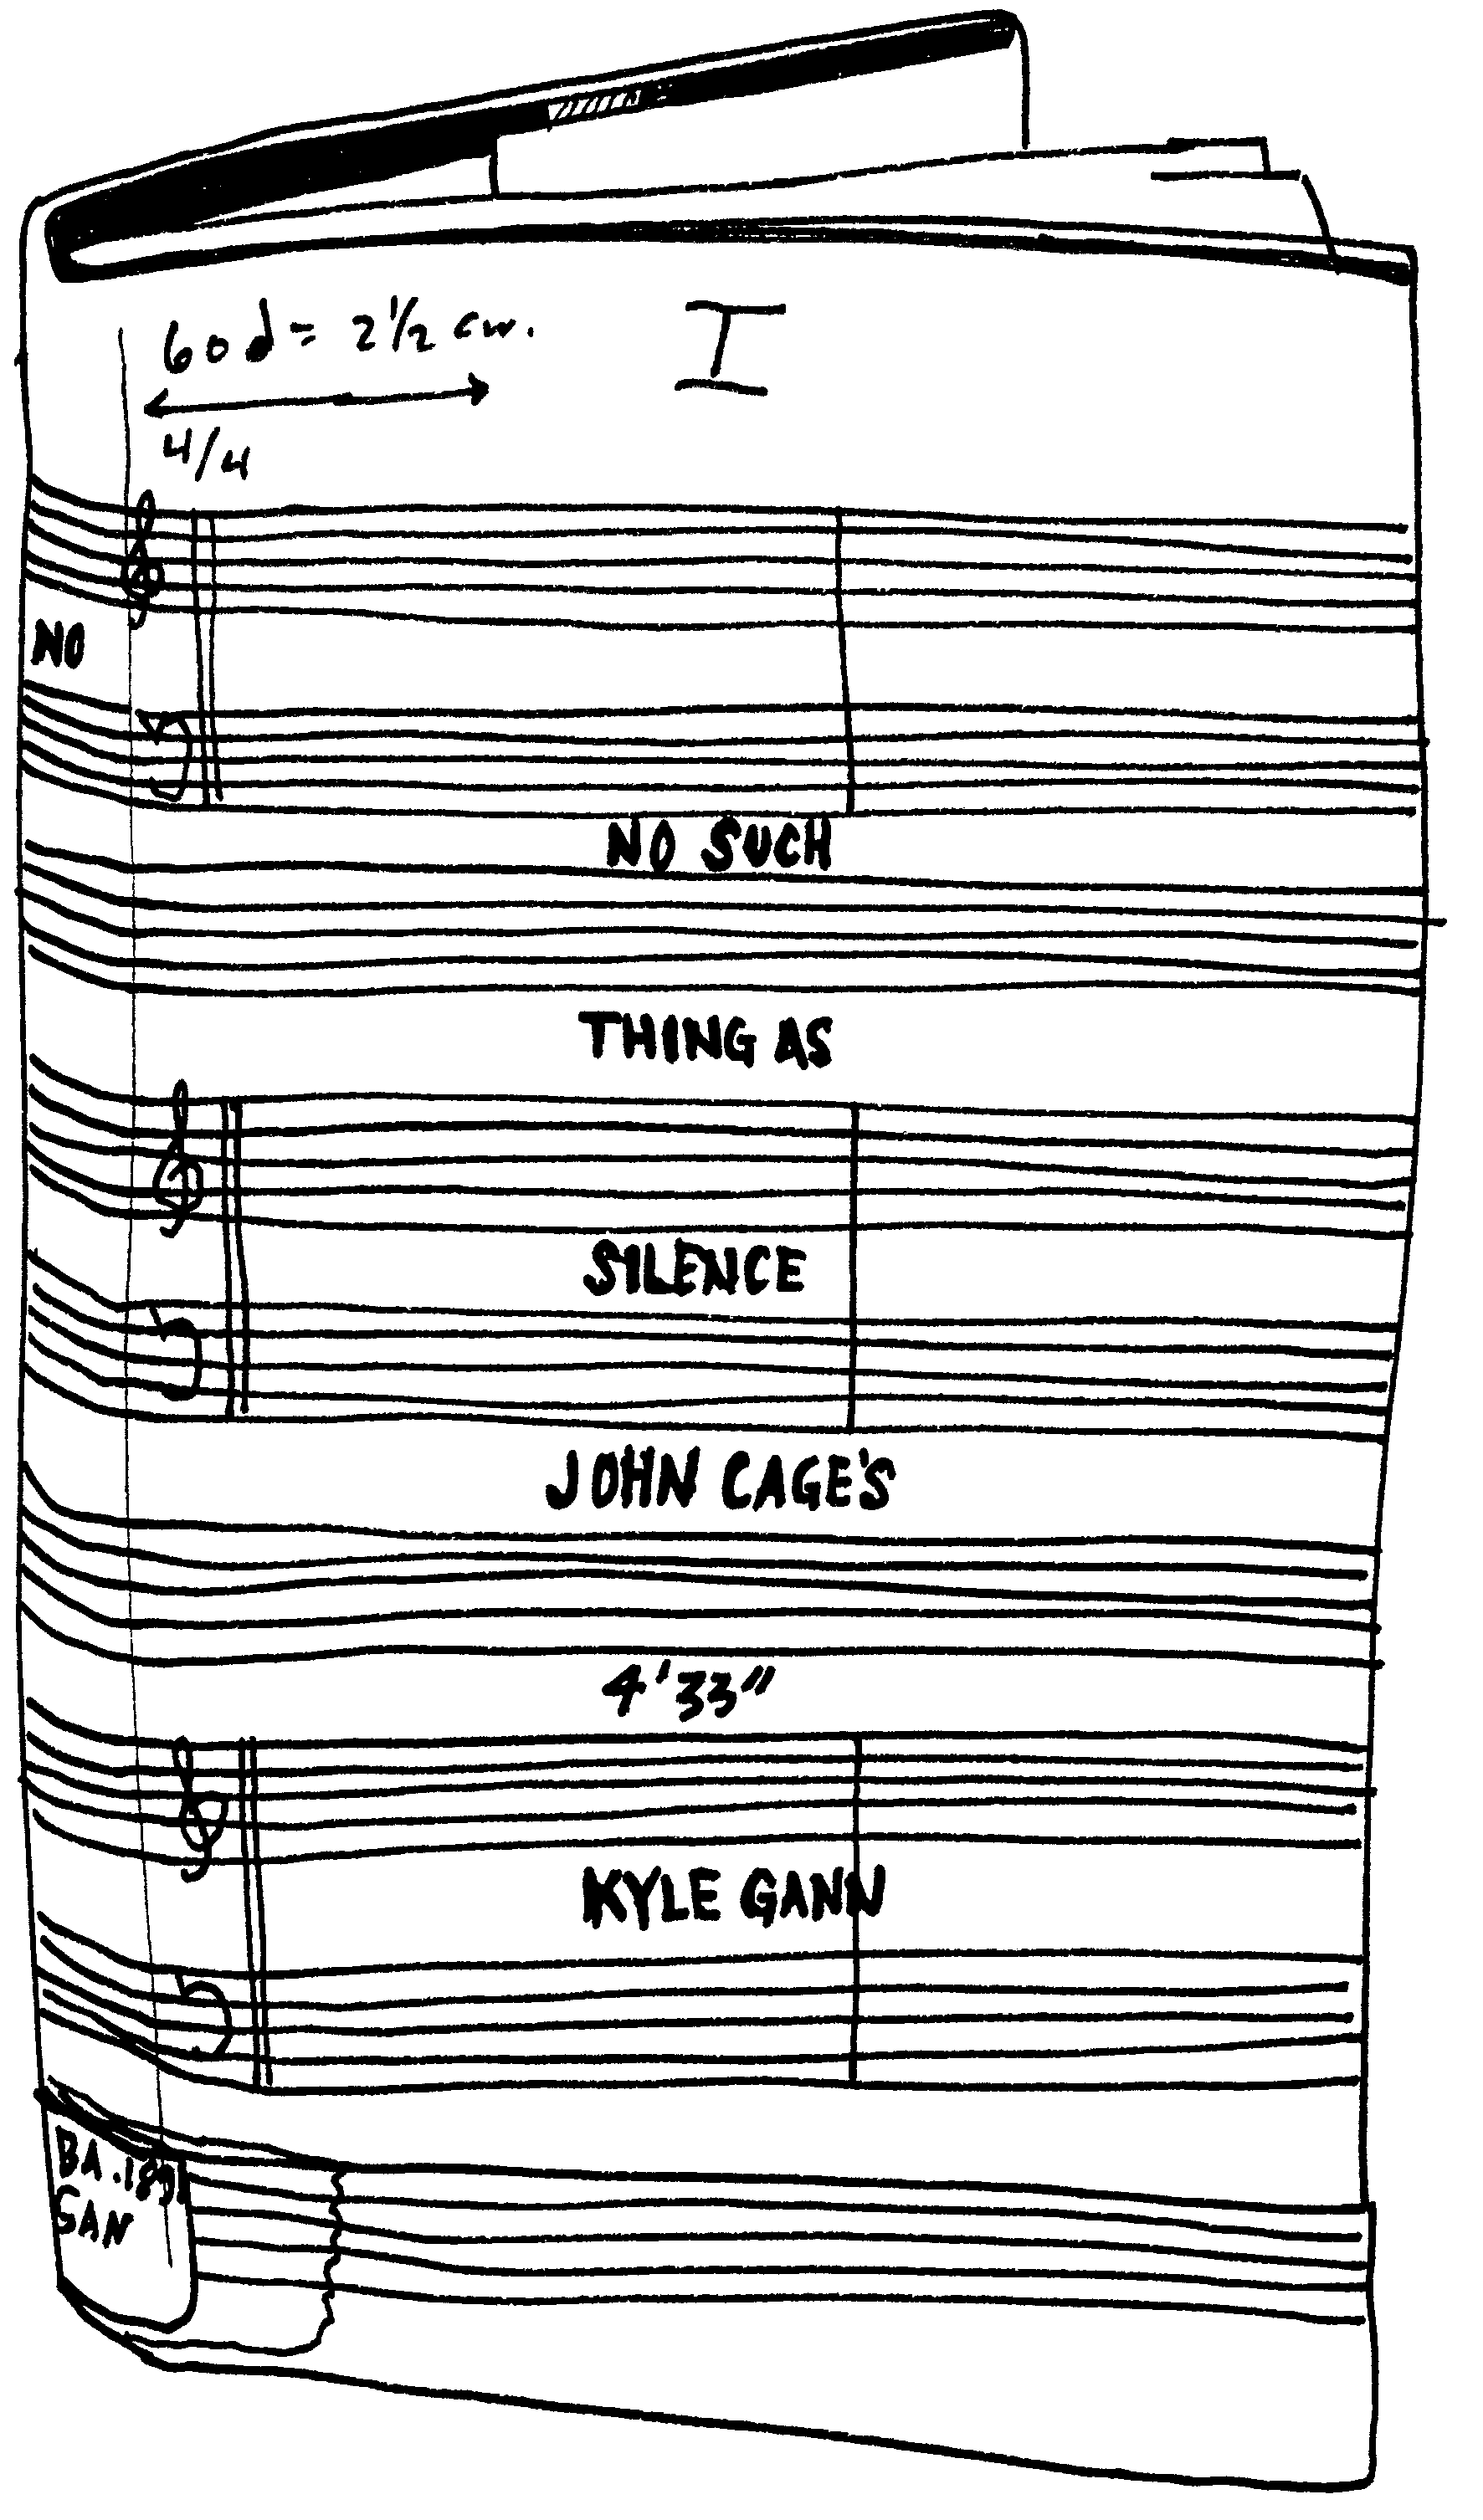 60♩= 2½ cm.
I
4/4
NO
NO SUCH
THING AS
SILENCE
JOHN CAGE'S
4'33"
KYLE GANN
BA.189
GAN